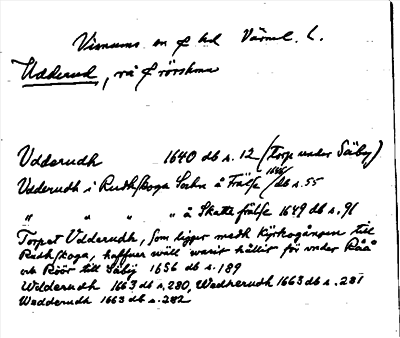 Visnums en och hd Värml. l.
Udderud,
Udderudh 1640 db s. 12 (Torp under Säby)
Udderudh i Rudhskoga Sochn å Frälse 1646/db s. 55
" " " " å Skatte frälse 1649 db s. 91
Torpet Udderudh, som ligger medh Kyrkogången till
Rudhskoga, haffuer wäll warit hållit för under Råå
och Röör till Säby 1656 db s. 189
Wedderudh 1663 db s. 280, Wedherudh 1663 db s. 281
Wedderudh 1663 db s. 282